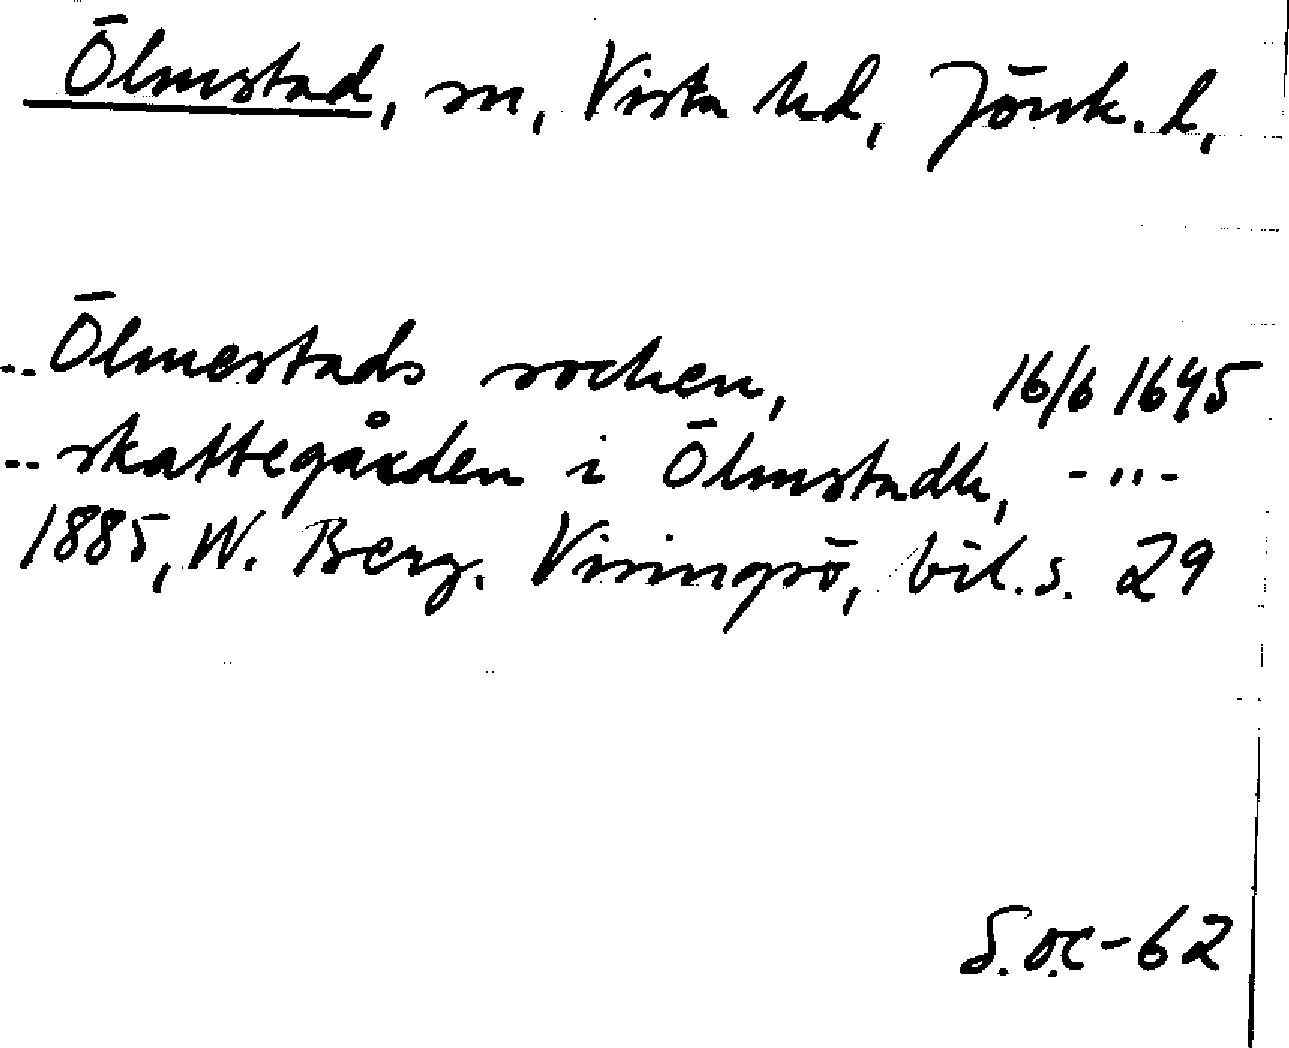 Ölmstad, sn, Vista hd, Jönk. l,
..Ölmestads sochen, 16/6 1645
..skattegården i Ölmstadh, -"-
1885, W. Berg. Visingsö, bil. s. 29
S.o.c-62